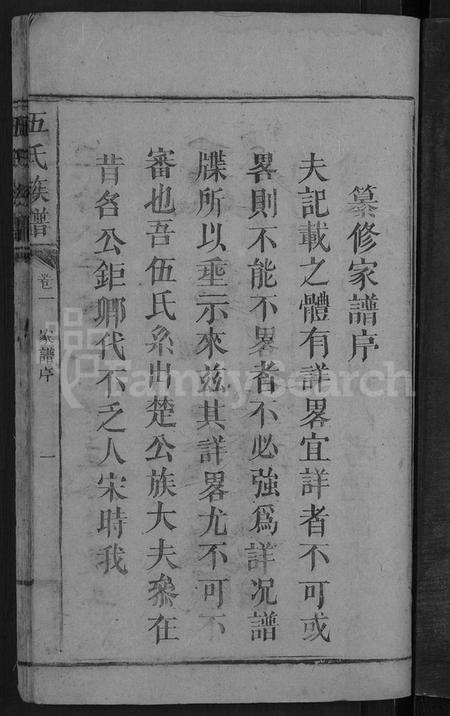 纂修家譜序
夫記載之體有詳畧宜詳者不可或
畧則不能不畧者不必強爲詳况譜
牒所以埀示來兹其詳畧尤不可不
審也吾伍氏系出楚公族大夫叅在
昔名公鉅卿代不乏人宋時我
伍氏族譜
卷一
家譜序
一
FamilySearch